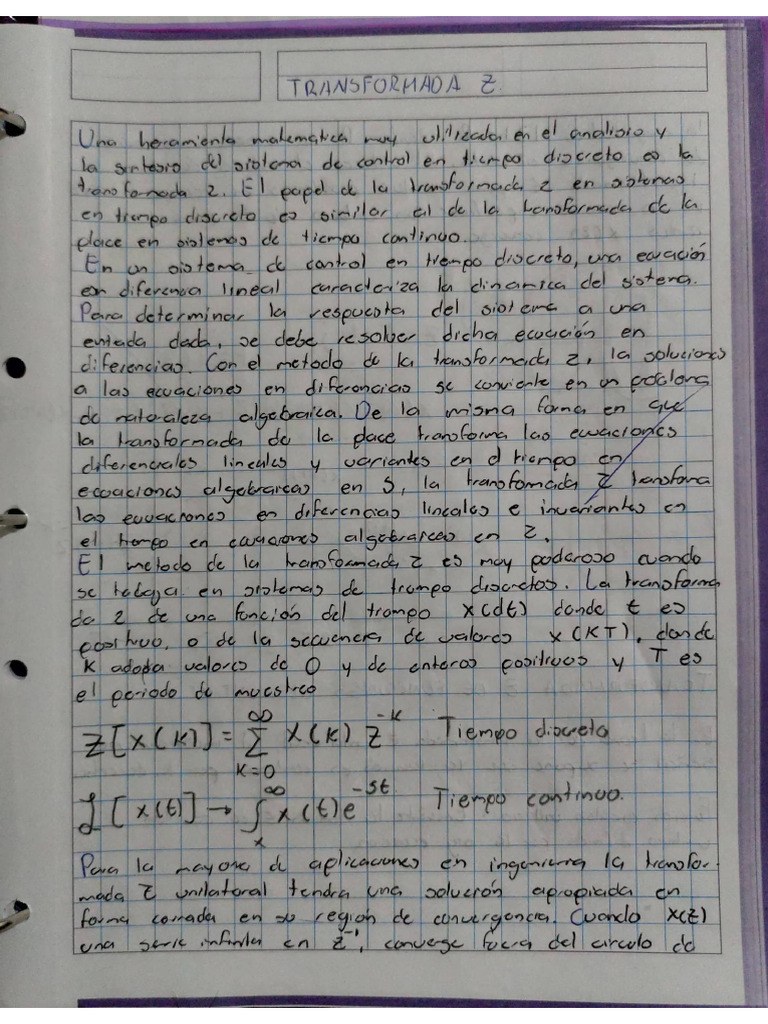 TRANSFORMADA Z.
Una heramienta matematica muy utilizada en el analisis y
la sintesis del sistema de control en tiempo discreto es la
transfomada z. El papel de la transformada z en sistemas
en tiempo discreto es similar al de la transformada de la
place en sistemas de tiempo continuo.
En un sistema de control en tiempo discreto, una ecuación
en diferencia lineal caracteriza la dinamica del sistema.
Para determinar la respuesta del sistema a una
entada dada, se debe resolver dicha ecuación en
diferencias. Con el metodo de la transformada z, la soluciones
a las ecuaciones en diferencias se conviente en un problema
de naturaleza algebraica. De la misma forma en que
la transformada de la place transforma las ecuaciones
diferenciales lineales y variantes en el tiempo en
ecuaciones algebraicas en S, la transfomada z transfoma
las ecuaciones en diferencias lineales e invariantes en
el tiempo en ecuaciones algebraicas en z.
El metodo de la transformada z es muy poderoso cuando
se trabaja en sistemas de tiempo discretos. La transforma
da z de una función del tiempo x(dt) donde t es
positivo, o de la secuencia de valores x(KT), donde
K adopta valores de 0 y de enteros positivos y T es
el periodo de muestreo
Z[x(k)] = ∞∑k=0 x(k) z^-k Tiempo discreto
ℒ[x(t)] → ∞∫x x(t)e^-st Tiempo continuo.
Para la mayoria de aplicaciones en ingenieria la transfor-
mada z unilateral tendra una solución apropiada en
forma cerrada en su región de convergencia. Cuando X(z)
una serie infinita en z^-1, converge fuera del circulo de